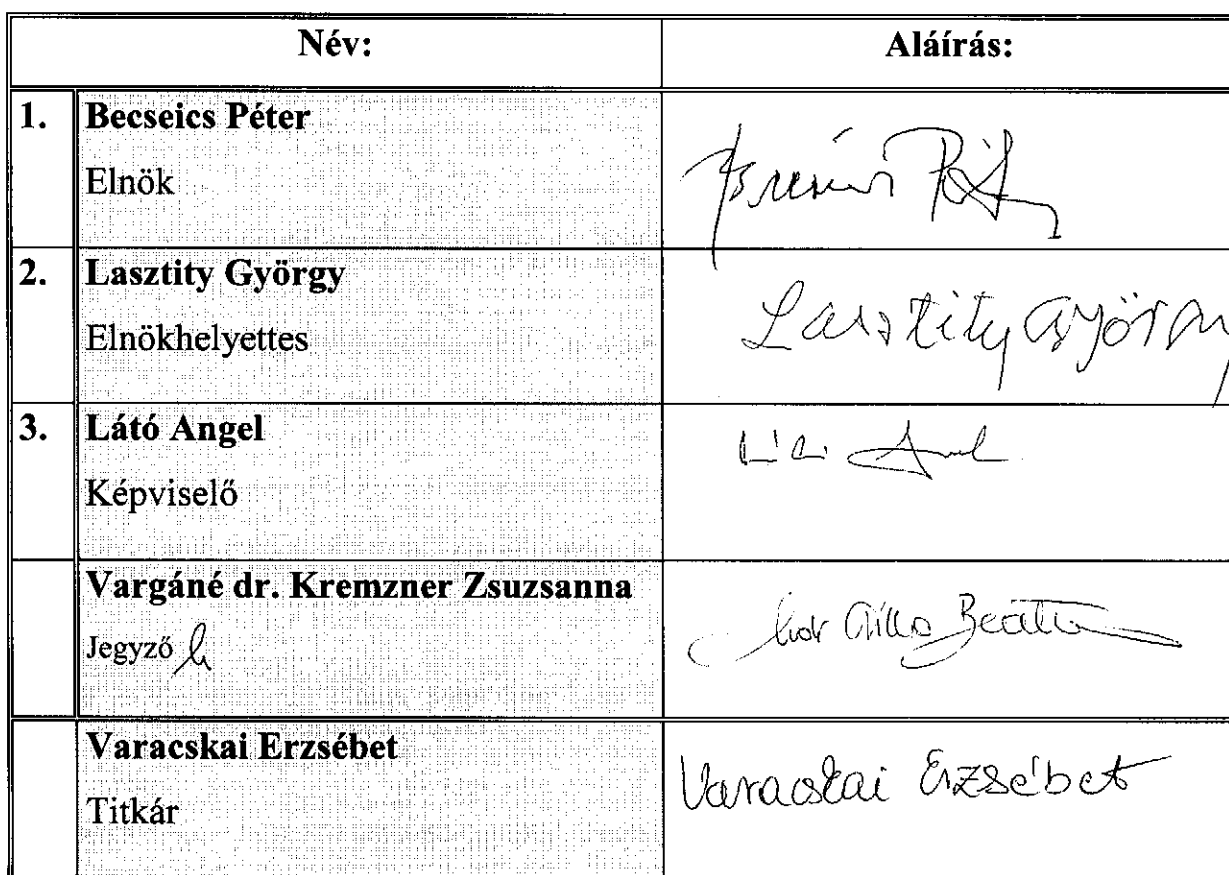 Név: Aláírás:
1. Becseics Péter
Elnök
2. Lasztity György
Elnökhelyettes
Lasztity György
3. Látó Angel
Képviselő
Vargáné dr. Kremzner Zsuzsanna
Jegyző h
Varacskai Erzsébet
Titkár
Varacskai Erzsébet